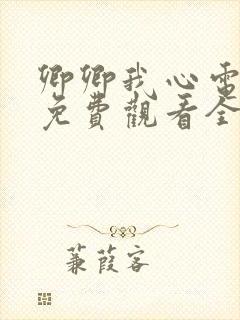 卿卿我心電
免費觀看全
蒹葭客